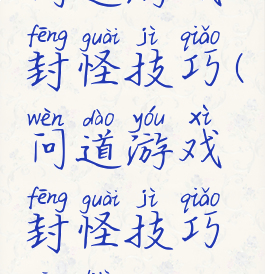 fēng guài jì qiǎo
封怪技巧(
wèn dào yóu xì
问道游戏
fēng guài jì qiǎo
封怪技巧